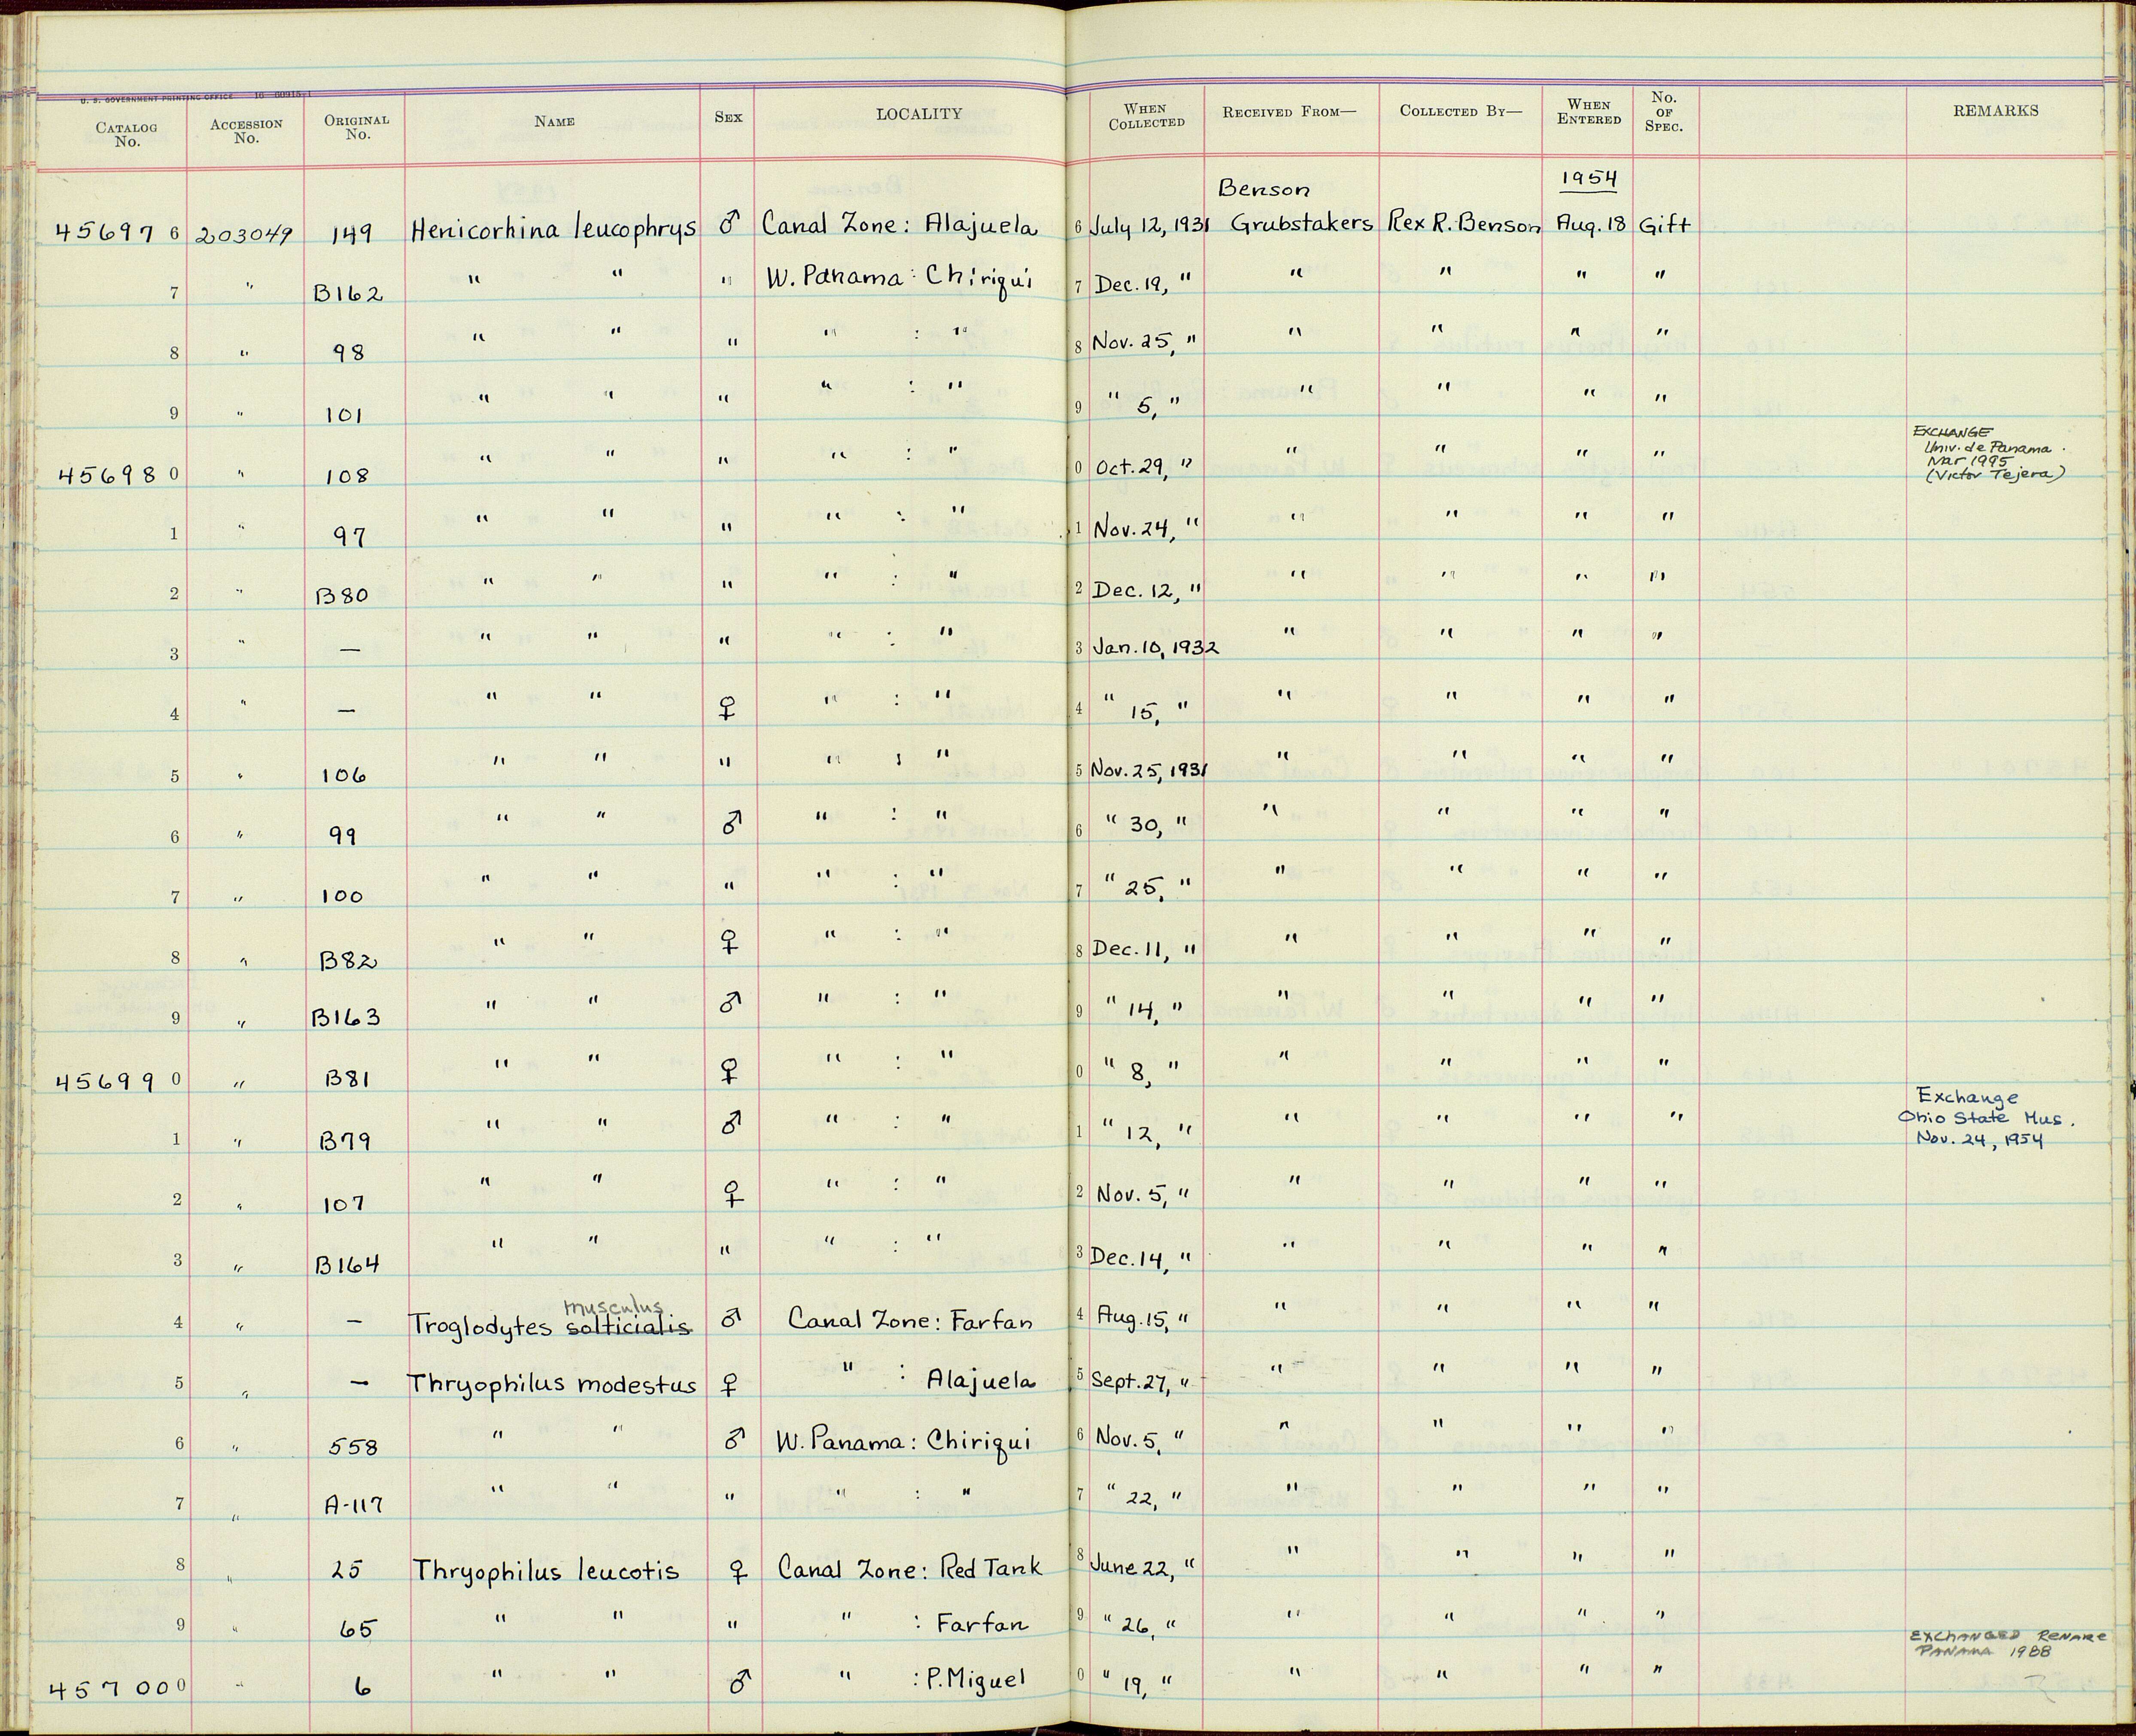 U. S. GOVERNMENT PRINTING OFFICE 16—60915-1
CATALOG No. ACCESSION No. ORIGINAL No. NAME SEX LOCALITY WHEN COLLECTED RECEIVED FROM— COLLECTED BY— WHEN ENTERED No. OF SPEC. REMARKS
Benson 1954
456976 203049 149 Henicorhina leucophrys ♂ Canal Zone: Alajuela 6 July 12, 1931 Grubstakers Rex R. Benson Aug. 18 Gift
7 " B162 " " " W. Panama: Chiriqui 7 Dec. 19, " " " " "
8 " 98 " " " " : " 8 Nov. 25, " " " " "
9 " 101 " " " " : " 9 " 5, " " " " "
456980 " 108 " " " " : " 0 Oct. 29, " " " " " EXCHANGE
Univ. de Panama.
Mar 1995
(Victor Tejera)
1 " 97 " " " " : " 1 Nov. 24, " " " " "
2 " B80 " " " " : " 2 Dec. 12, " " " " "
3 " — " " " " : " 3 Jan. 10, 1932 " " " "
4 " — " " ♀ " : " 4 " 15, " " " " "
5 " 106 " " " " : " 5 Nov. 25, 1931 " " " "
6 " 99 " " ♂ " : " 6 " 30, " " " " "
7 " 100 " " " " : " 7 " 25, " " " " "
8 " B82 " " ♀ " : " 8 Dec. 11, " " " " "
9 " B163 " " ♂ " : " 9 " 14, " " " " "
456990 " B81 " " ♀ " : " 0 " 8, " " " " "
1 " B79 " " ♂ " : " 1 " 12, " " " " " Exchange
Ohio State Mus.
Nov. 24, 1954
2 " 107 " " ♀ " : " 2 Nov. 5, " " " " "
3 " B164 " " " " : " 3 Dec. 14, " " " " "
musculus
4 " — Troglodytes solticialis ♂ Canal Zone: Farfan 4 Aug. 15, " " " " "
5 " — Thryophilus modestus ♀ " : Alajuela 5 Sept. 27, " " " " "
6 " 558 " " ♂ W. Panama: Chiriqui 6 Nov. 5, " " " " "
7 " A-117 " " " " : " 7 " 22, " " " " "
8 " 25 Thryophilus leucotis ♀ Canal Zone: Red Tank 8 June 22, " " " " "
9 " 65 " " " " : Farfan 9 " 26, " " " " "
EXCHANGED RENARE
PANAMA 1988
457000 " 6 " " ♂ " : P. Miguel 0 " 19, " " " " "